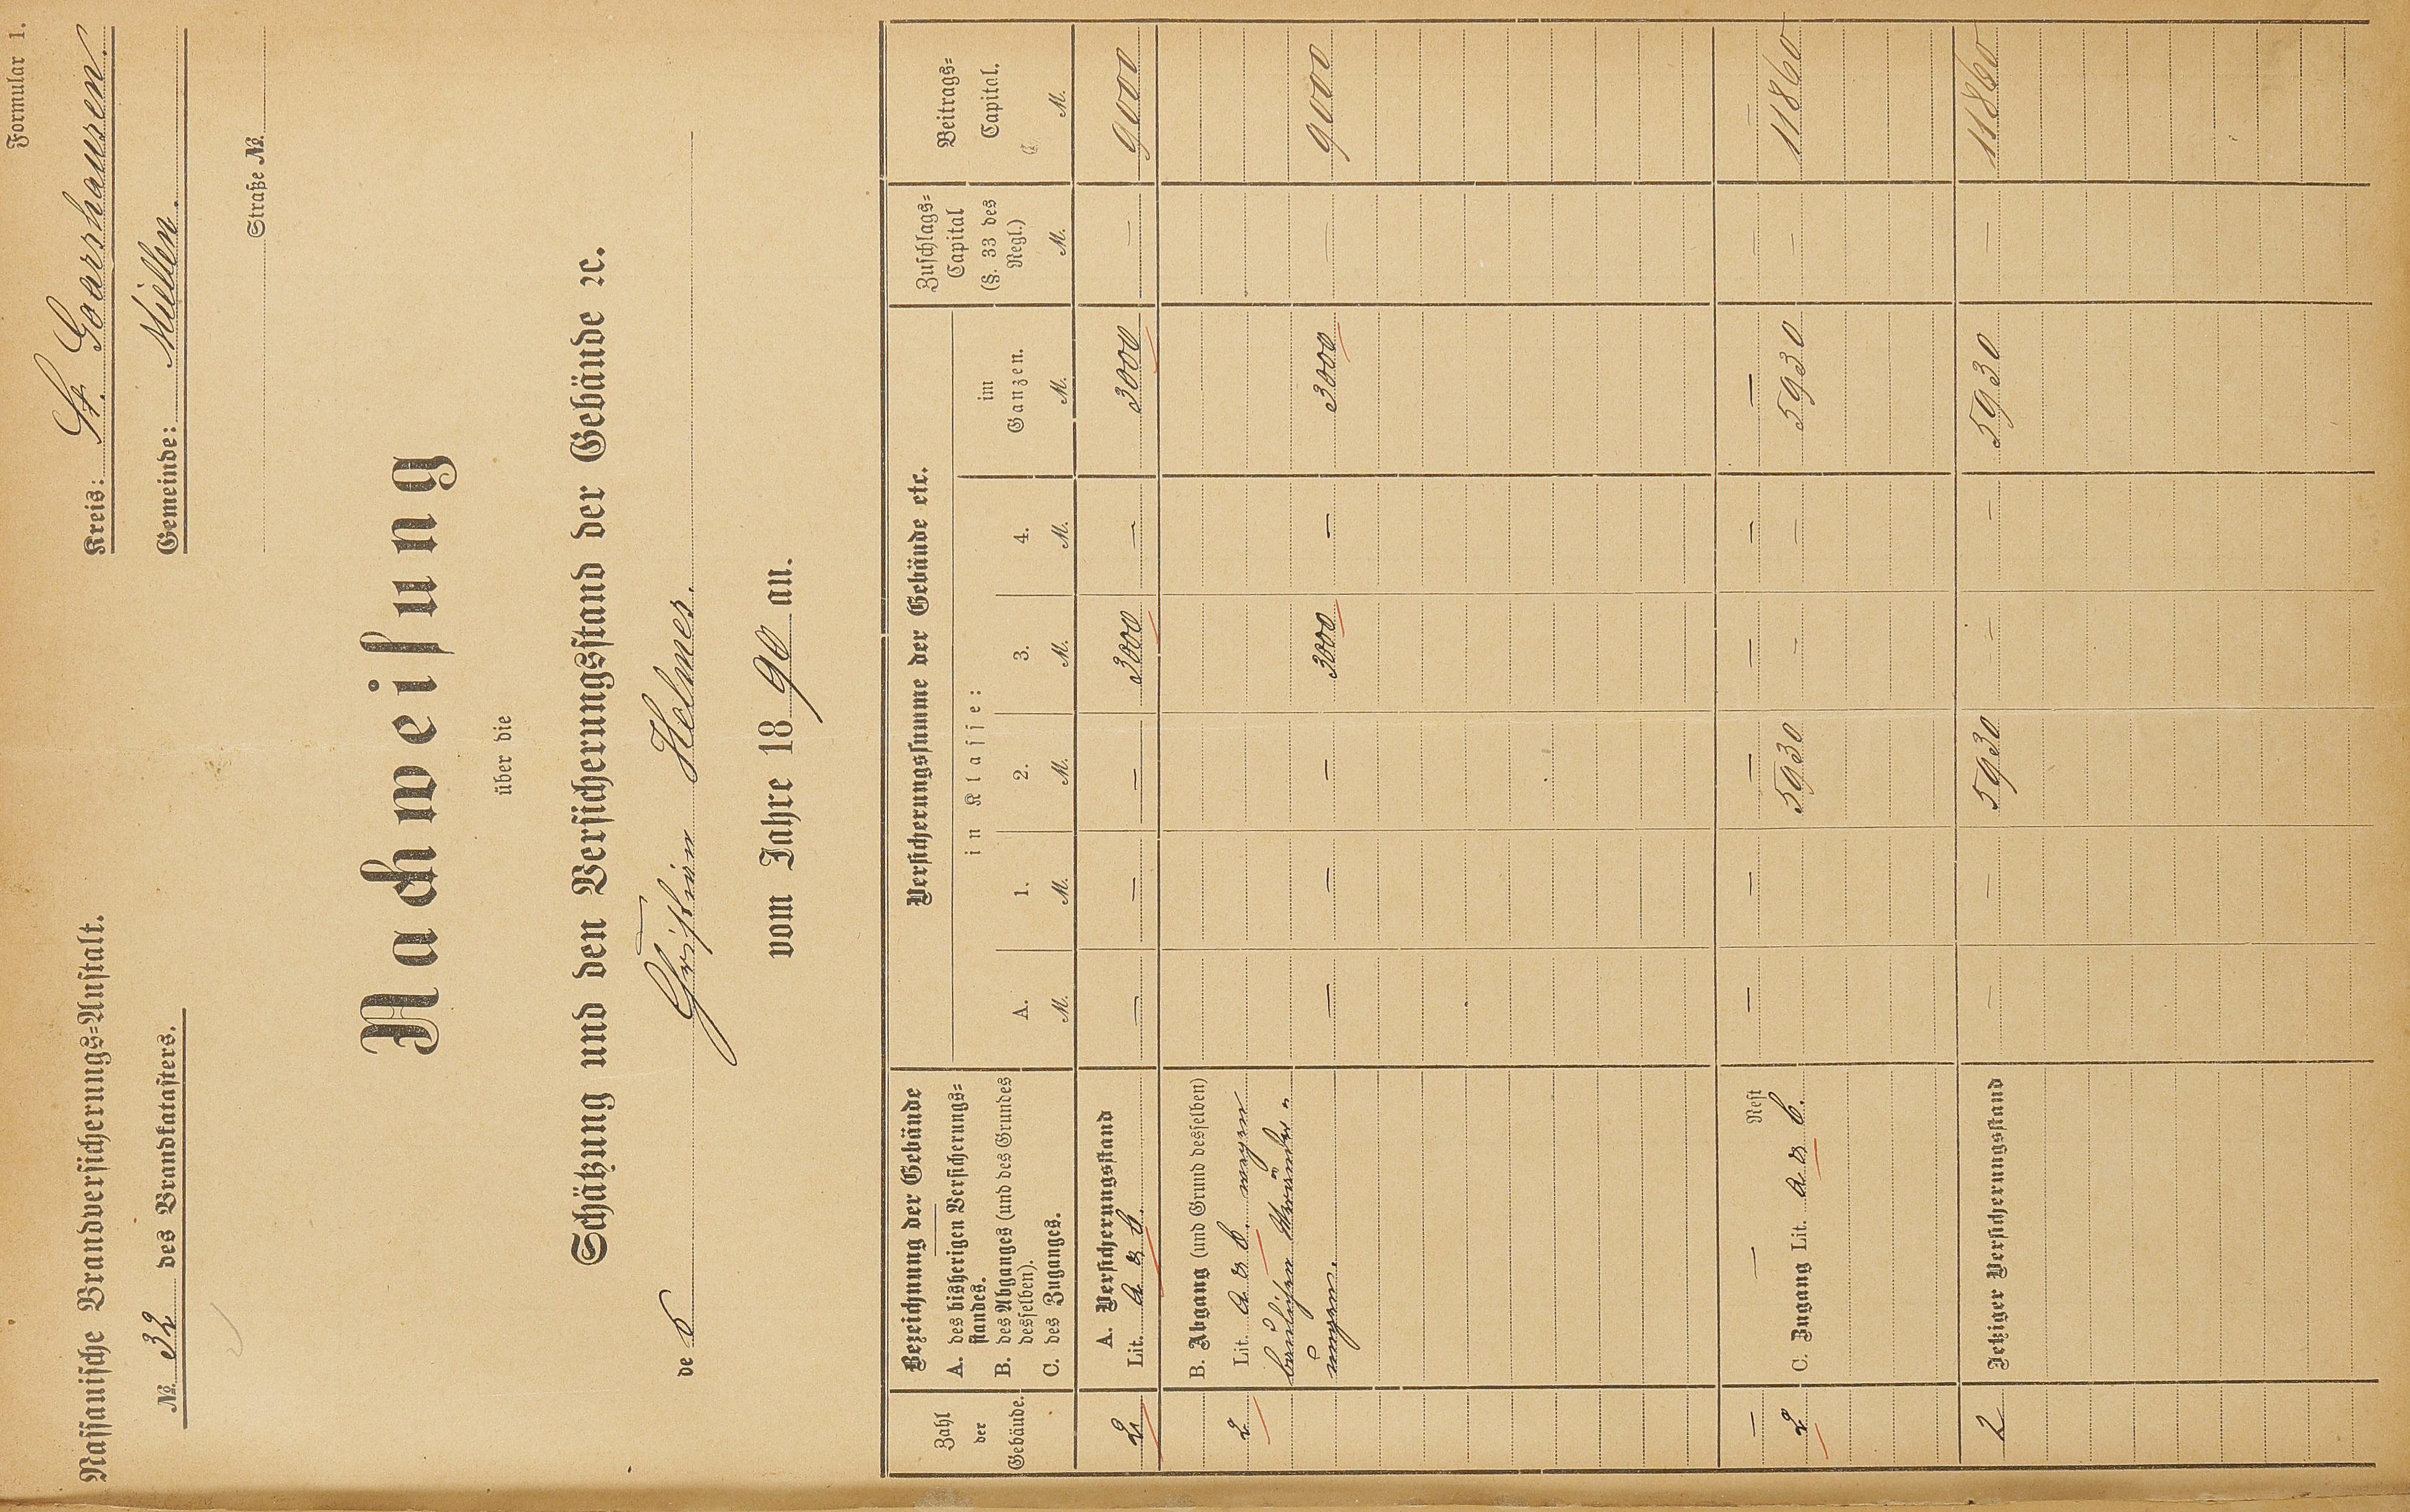 Formular 1.
Nassauische Brandversicherungs=Anstalt.
Kreis: St. Goarshausen.
№ 32 des Brandkatasters.
Gemeinde: Miellen.
Straße №
Nachweisung
über die
Schätzung und den Versicherungsstand der Gebäude ꝛc.
de s Christian Helmes.
vom Jahre 1890 an.
Zahl der Gebäude.
Bezeichnung der Gebäude
A. des bisherigen Versicherungs=
standes.
B. des Abganges (und des Grundes
desselben).
C. des Zuganges.
Versicherungssumme der Gebäude etc.
in Klasse:
A. 1. 2. 3. 4.
im Ganzen.
M. M. M. M. M. M.
Zuschlags=
Capital
(§. 33 des
Regl.)
M.
Beitrags=
Capital.
M.
A. Versicherungsstand
2 Lit. a & b. — — — 3000 — 3000 — 9000
B. Abgang (und Grund desselben)
2 Lit. a & b. wegen
baulichen Veränder=
ungen. — — — 3000 — 3000 — 9000
— Rest — — — — — — — — —
2 C. Zugang Lit. a & b. 5930 — — 5930 — 11860
2 Jetziger Versicherungsstand — — 5930 — — 5930 — 11860